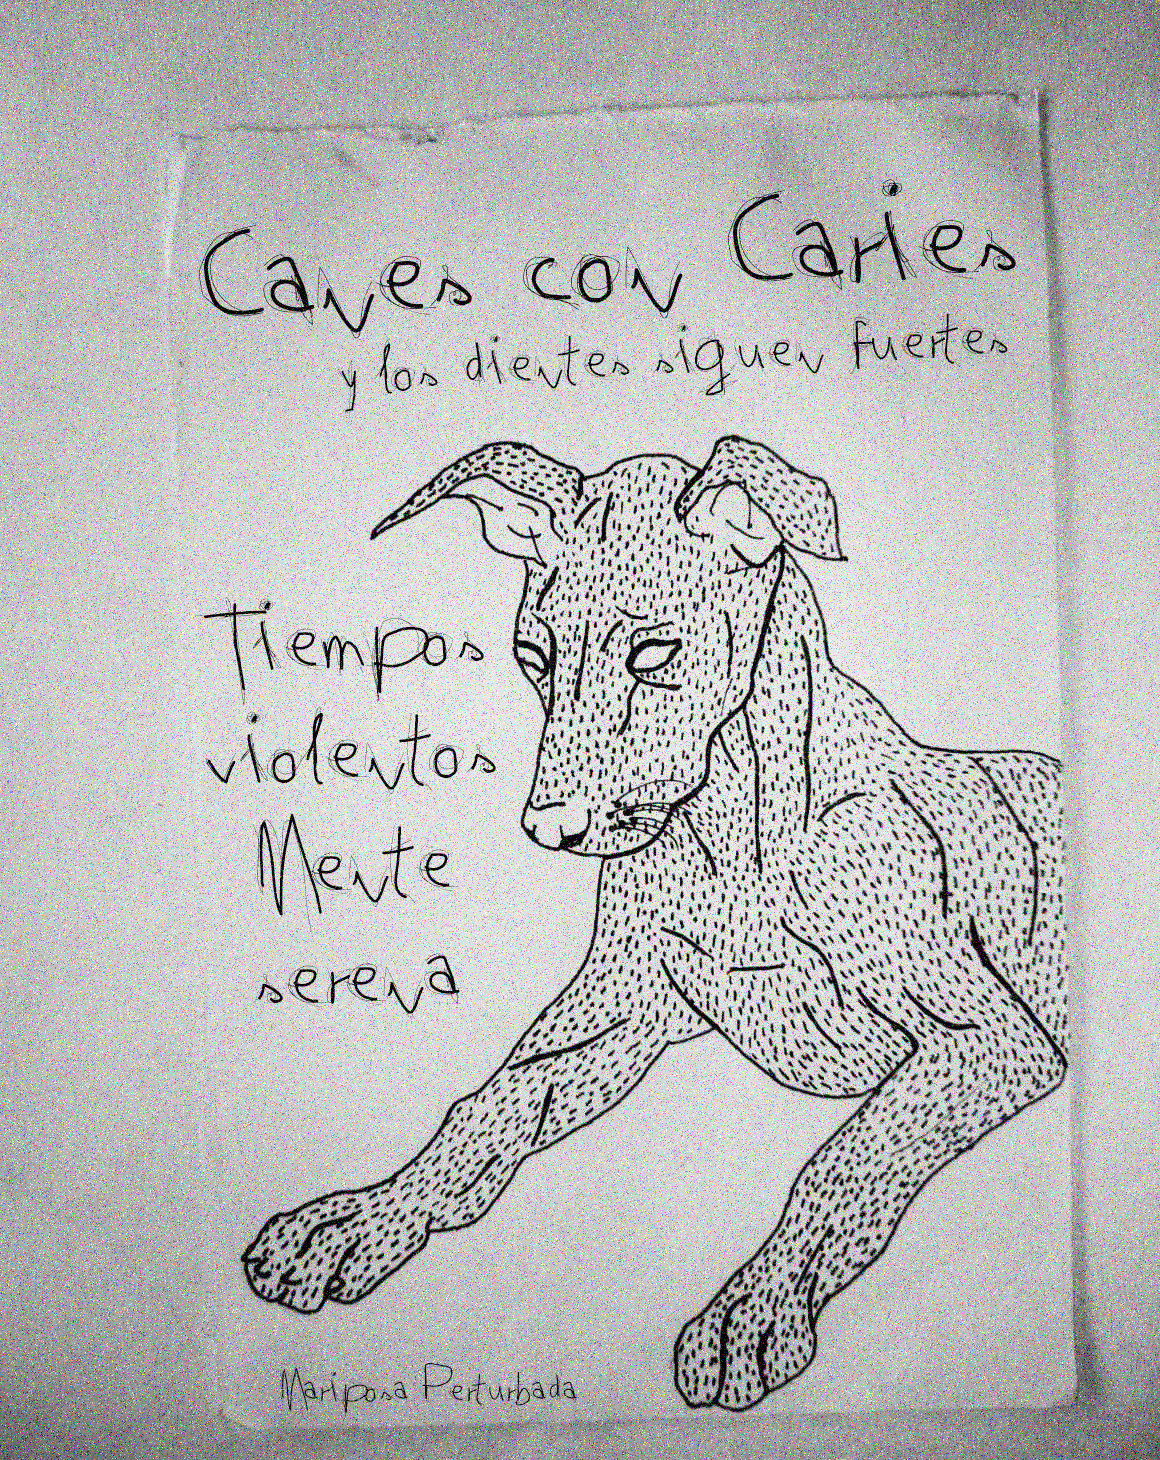 Canes con Caries
y los dientes siguen fuertes
Tiempos
violentos
Mente
serena
Mariposa Perturbada